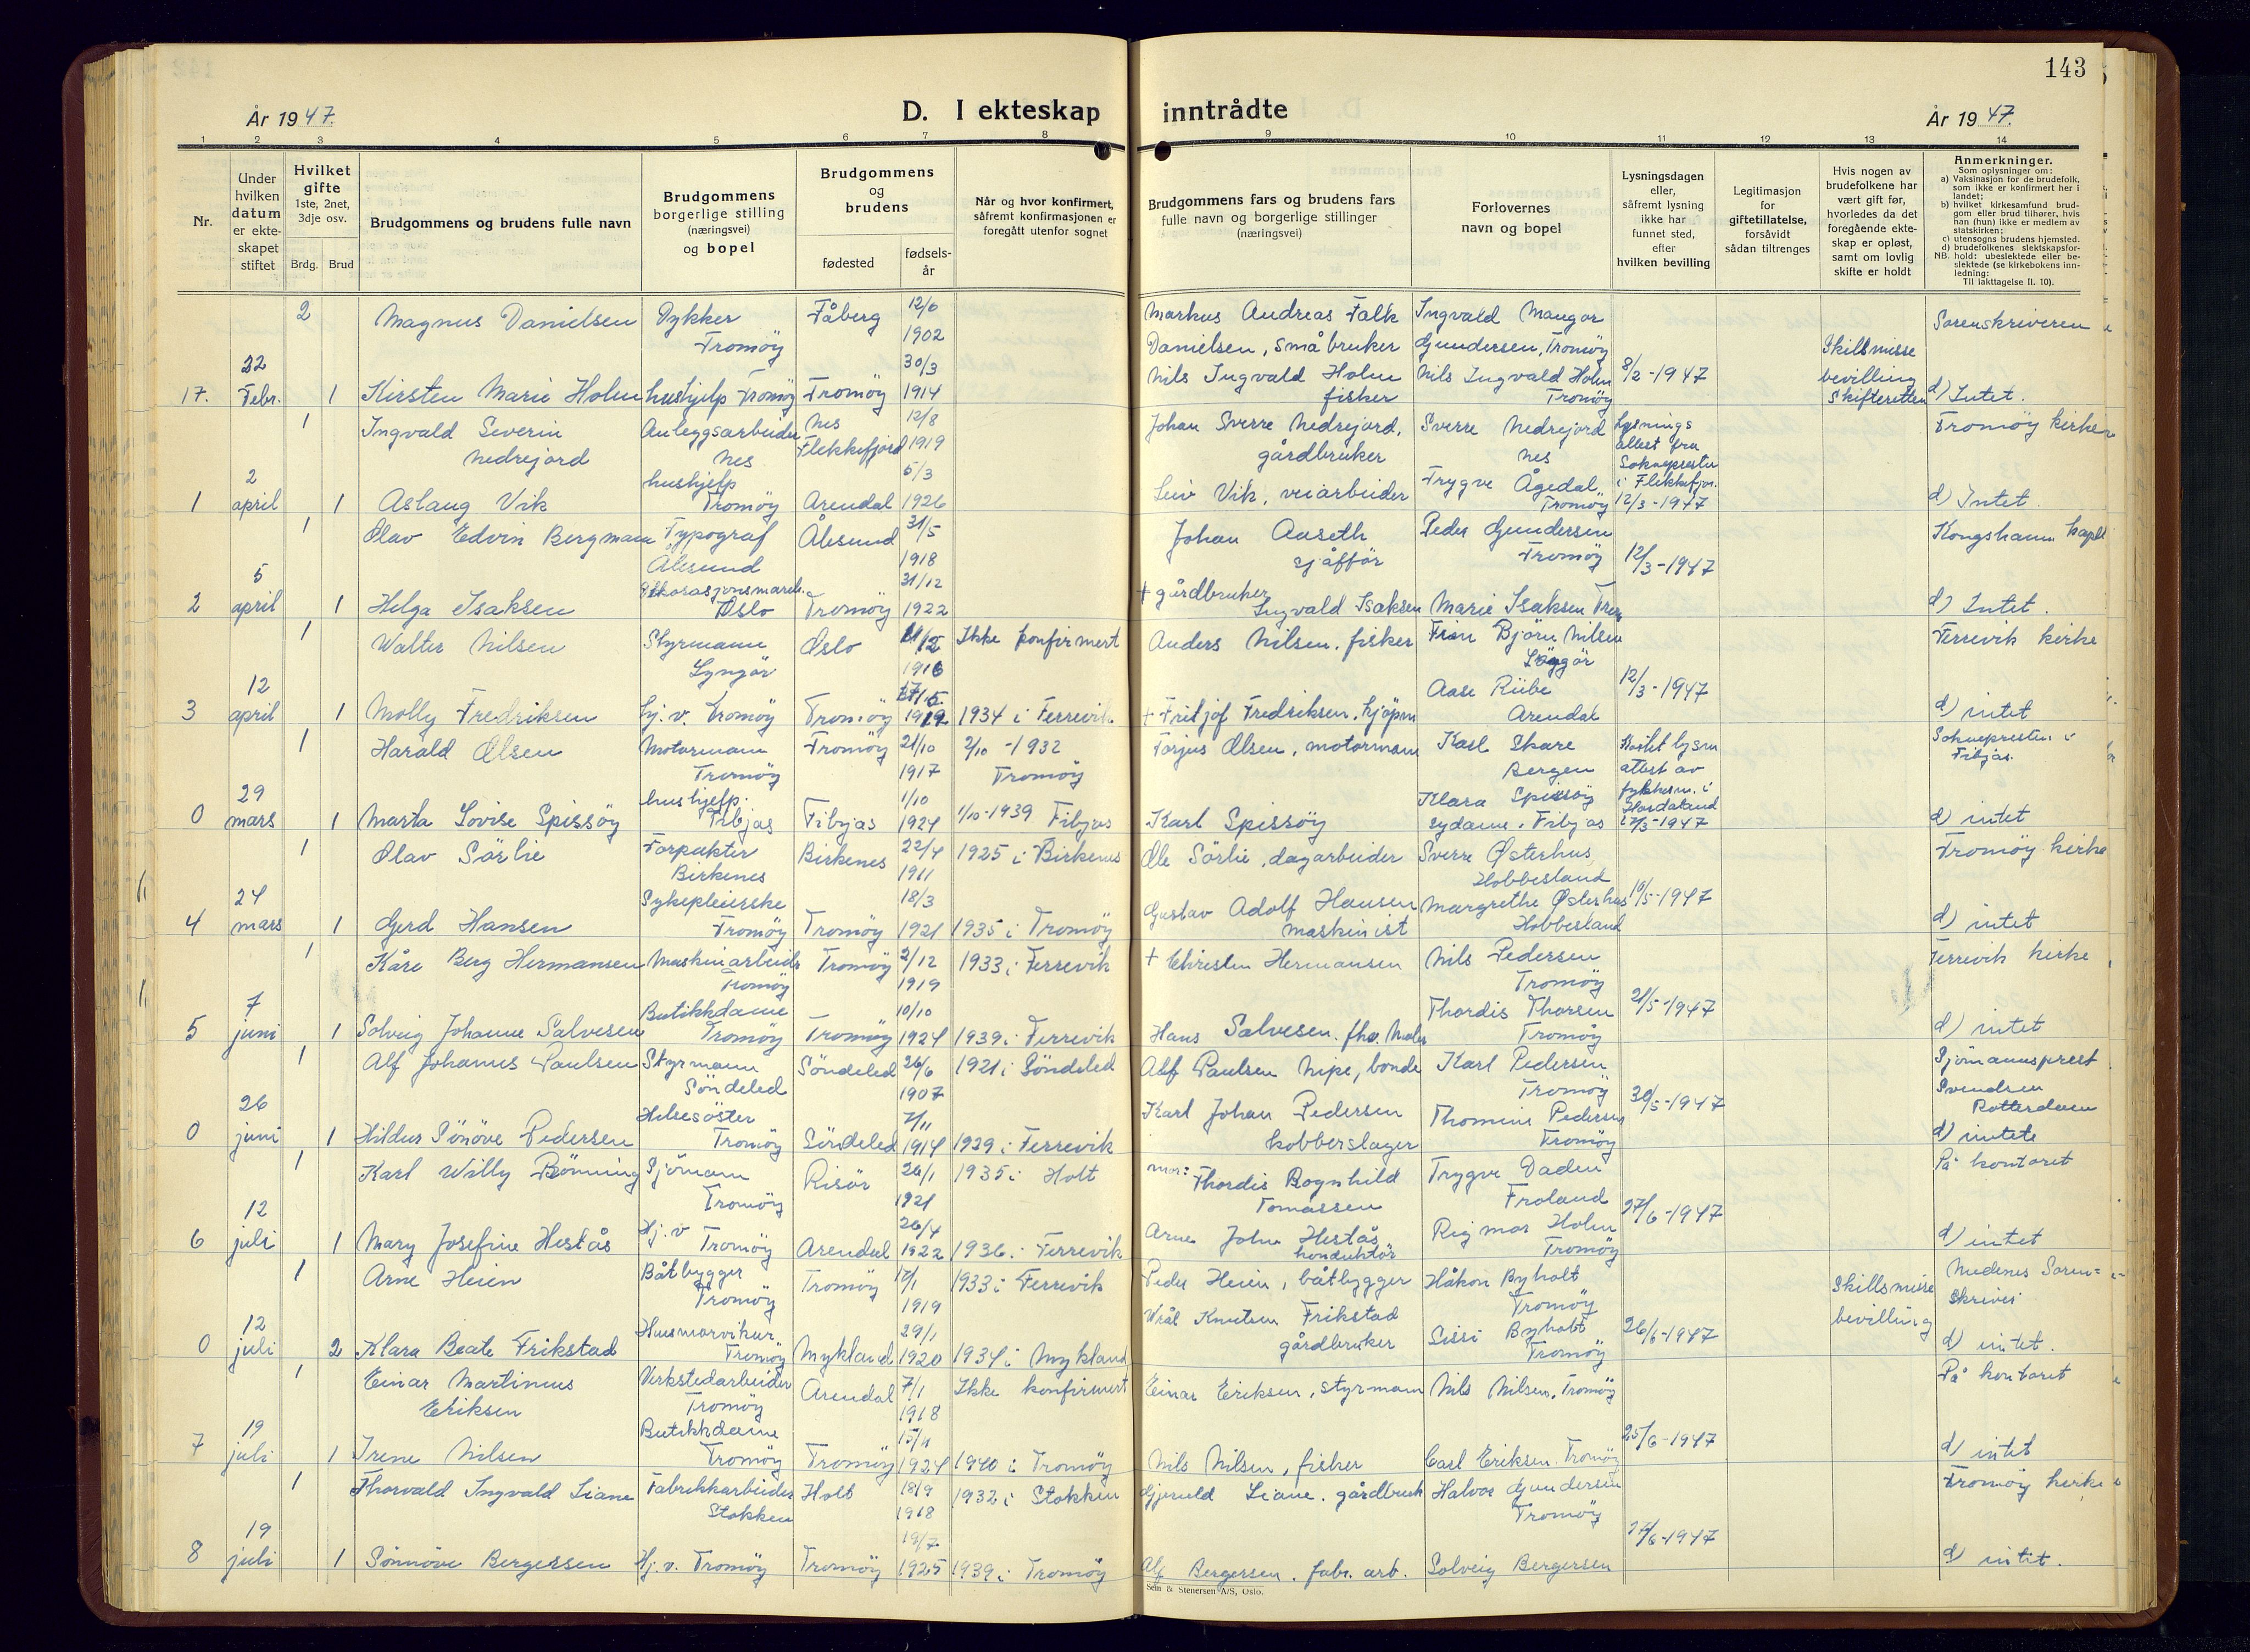 143
År 1947.
D. I ekteskap inntrådte
År 1947.
1 2 3 4 5 6 7 8 9 10 11 12 13 14
Nr.
Under hvilken datum er ekteskapet stiftet
Hvilket gifte 1ste, 2net, 3dje osv.
Brdg. Brud
Brudgommens og brudens fulle navn
Brudgommens borgerlige stilling (næringsvei) og bopel
Brudgommens og brudens
fødested
fødsels-år
Når og hvor konfirmert, såfremt konfirmasjonen er foregått utenfor sognet
Brudgommens fars og brudens fars fulle navn og borgerlige stillinger (næringsvei)
Forlovernes navn og bopel
Lysningsdagen eller, såfremt lysning ikke har funnet sted, efter hvilken bevilling
Legitimasjon for giftetillatelse, forsåvidt sådan tiltrenges
Hvis nogen av brudefolkene har vært gift før, hvorledes da det foregående ekteskap er opløst, samt om lovlig skifte er holdt
Anmerkninger.
Som oplysninger om:
a) Vaksinasjon for de brudefolk, som ikke er konfirmert her i landet;
b) hvilket kirkesamfund brudgom eller brud tilhører, hvis han (hun) ikke er medlem av statskirken;
c) utensogns brudens hjemsted.
d) brudefolkenes slektskapsforhold: ubeslektede eller beslektede (se kirkebokens innledning:
NB.
Til iakttagelse II. 10).
2 Magnus Danielsen Dykker Tromöy Fåberg 12/6 1902 Markus Andreas Falk Danielsen, småbruker Ingvald Mangor Gundersen, Tromöy Skilsmisse bevilling Skifteretten Sorenskriveren
17. 22 Febr. 1 Kirsten Marie Holm hushjelp Tromöy Tromöy 30/3 1914 Nils Ingvald Holm fisker Nils Ingvald Holm Tromöy 8/2-1947 d) Intet.
1 Ingvald Severin Nedrejord Anleggsarbeider Nes Nes Flekkefjord 12/8 1919 Johan Sverre Nedrejord, gårdbruker Sverre Nedrejord Nes Lysnings attest fra Soknepresten i Flekkefjor. Tromöy kirke
1 2 april 1 Aslaug Vik hushjelp Tromöy Arendal 5/3 1926 Leiv Vik, veiarbeider Trygve Ågedal Tromöy 12/3-1947 d) Intet
1 Olav Edvin Bergmann Typograf Ålesund Ålesund 31/5 1918 Johan Aaseth sjåfför Peder Gundersen Tromöy 12/3-1947 Kongshamn kapell
2 5 april 1 Helga Isaksen Oslo Tromöy 31/12 1922 + gårdbruker Ingvald Isaksen Marie Isaksen d) Intet.
1 Walter Nilsen Styrmann Lyngör Oslo 1916 Ikke konfirmert Anders Nilsen, fisker Finn Björn Nilsen Ferrevik kirke
3 12 april 1 Molly Fredriksen hj. v. Tromöy Tromöy 1919 1934 i Ferrevik + Fritjof Fredriksen, kjöpm Aase Riibe Arendal 12/3-1947 d) intet
1 Harald Olsen Motormann Tromöy Tromöy 21/10 1917 2/10-1932 Tromöy Torjus Olsen, motormann Karl Skare Bergen lysn attest av fylkesm. i Hordaland 27/3-1947 Soknepresten i Fitjar.
0 29 mars 1 Marta Lovise Spissöy hushjelp. Fitjar Fitjar 1/10 1924 1/10-1939 Fitjar Karl Spissöy Klara Spissöy sydame, Fitjar d) intet
1 Olav Sörlie Forpakter Birkenes Birkenes 22/4 1911 1925 i Birkenes Ole Sörlie, dagarbeider Sverre Østerhus Hobbesland Tromöy kirke
4 24 mars 1 Gerd Hansen Sykepleierske Tromöy Tromöy 18/3 1921 1935 i Tromöy Gustav Adolf Hansen maskinist Margrethe Østerhus Hobbesland 10/5-1947 d) intet
1 Kåre Berg Hermansen Maskinarbeider Tromöy Tromöy 2/12 1919 1933 i Ferrevik + Christen Hermansen Nils Pedersen Tromöy Ferrevik kirke
5 7 juni 1 Solveig Johanne Salvesen Butikkdame Tromöy Tromöy 10/10 1924 1939 i Ferrevik Hans Salvesen. Thordis Thorsen Tromöy 21/5-1947 d) intet
1 Alf Johannes Paulsen Styrmann Söndeled Söndeled 26/6 1907 1921 i Söndeled Alf Paulsen Nipe, bonde Karl Pedersen Tromöy Sjömannsprest Svendsen Rotterdam
0 26 juni 1 Hildur Sönöve Pedersen Helsesöster Tromöy Söndeled 7/11 1914 1929 i Ferrevik Karl Johan Pedersen kobberslager Thomine Pedersen Tromöy 30/5-1947 d) intete
1 Karl Willy Bönning Sjömann Tromöy Risör 26/1 1921 1935 i Holt mor: Thordis Ragnhild Tomassen Trygve Daden Froland På kontoret
6 12 juli 1 Mary Josefine Hestås Hj. v Tromöy Arendal 26/4 1922 1936 i Ferrevik Arne John Hestås konduktör Rigmor Holm Tromöy 27/6-1947 d) intet
1 Arne Heien Båtbygger Tromöy Tromöy 17/1 1919 1933 i Ferrevik Peder Heien, båtbygger Håkon Byholt Tromöy Skillsmisse bevilling Nedenes Sorenskriver
0 12 juli 2 Klara Beate Frikstad Husmorvikar Tromöy Mykland 29/1 1920 1934 i Mykland Vrål Knutsen Frikstad gårdbruker Sissi Byholt Tromöy 26/6-1947 d) intet.
1 Einar Martinius Eriksen Verkstedarbeider Tromöy Arendal 7/1 1918 Ikke konfirmert Einar Eriksen, styrmann Nils Nilsen, Tromöy På kontoret
7 19 juli 1 Irene Nilsen Butikkdame Tromöy Tromöy 15/11 1924 1940 i Tromöy Nils Nilsen, fisker Carl Eriksen Tromöy 25/6-1947 d) intet
1 Thorvald Ingvald Liane Fabrikkarbeider Stokken Holt 18/9 1918 1932 i Stokken Liane, gårdbruk Halvor Gundersen Tromöy Tromöy kirke
8 19 juli 1 Sönnöve Bergersen Hj. v. Tromöy Tromöy 19/7 1925 1939 i Tromöy Alf Bergersen. fabr. arb. Solveig Bergersen 27/6-1947 d) intet.
Sem & Stenersen A/S, Oslo.